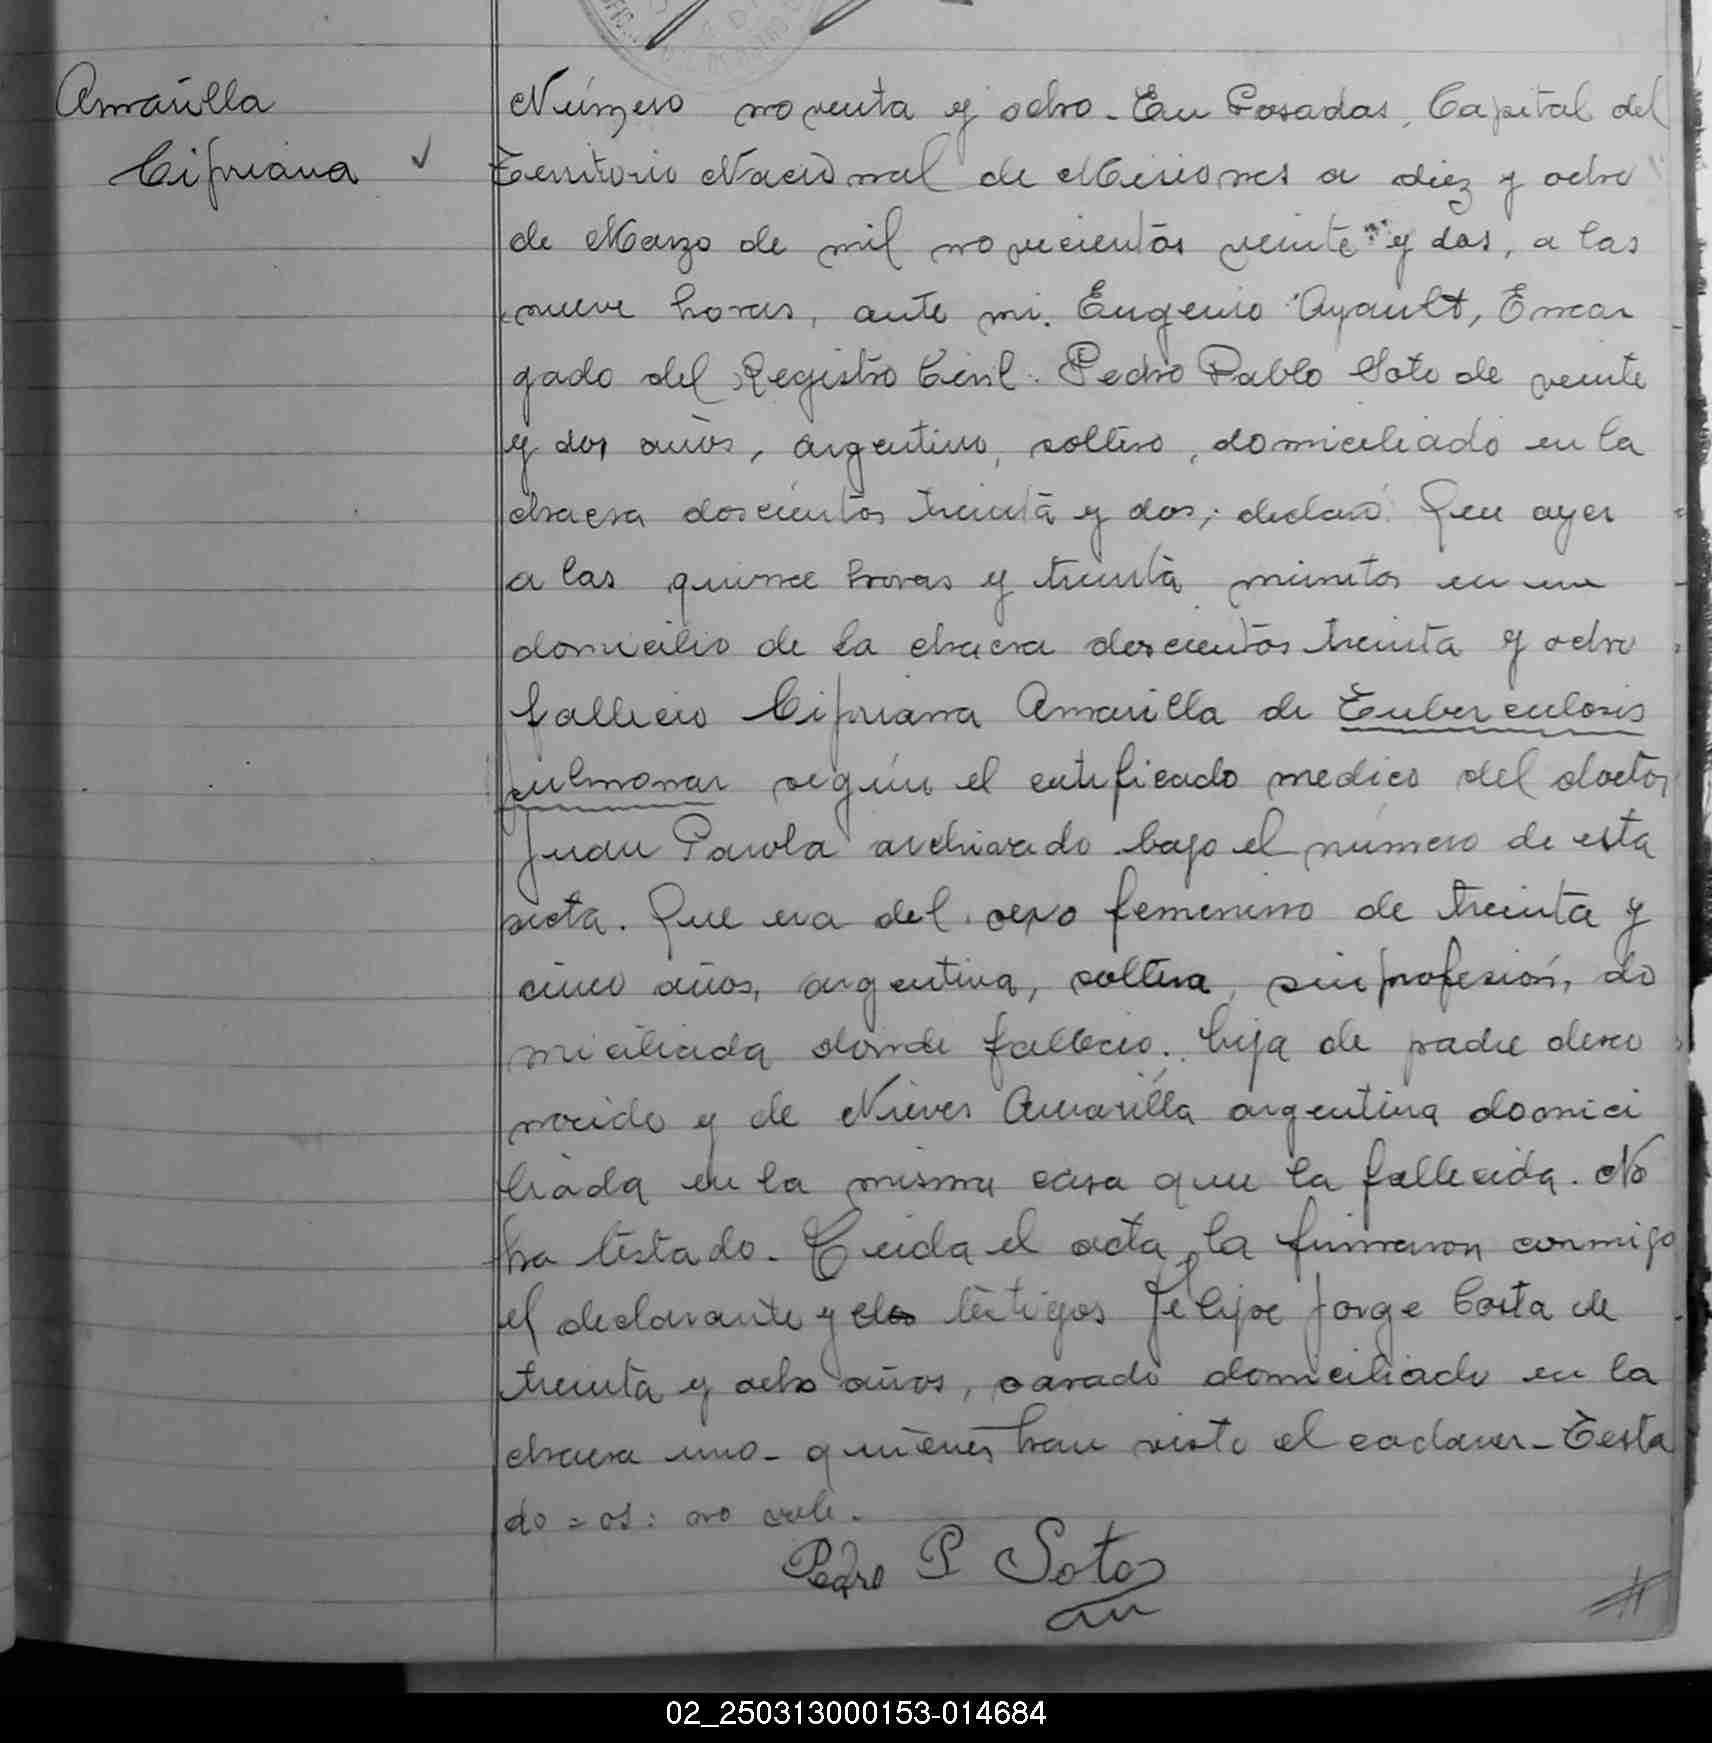 Amarilla
Cipriana
Número noventa y ocho. En Posadas, Capital del
Territorio Nacional de Misiones a diez y ocho
de Marzo de mil novecientos veinte y dos, a las
nueve horas, ante mi. Eugenio Ayault, Encar
gado del Registro Civil. Pedro Pablo Soto de veinte
y dos años, argentino, soltero, domiciliado en la
chacra doscientos treinta y dos; declaró: Que ayer
a las quince horas y treinta minutos en un
domicilio de la chacra doscientos treinta y ocho
fallecio Cipriana Amarilla de Tuberculosis
pulmonar según el certificado medico del doctor
Juan Parola archivado bajo el número de esta
acta. Que era del sexo femenino de treinta y
cinco años, argentina, soltera, sin profesión, do
miciliada donde fallecio. hija de padre desco
nocido y de Nieves Amarilla argentina domici
liada en la misma casa que la fallecida. No
ha testado. Leida el acta la firmaron conmigo
el declarante y el testigos Felipe Jorge Costa de
treinta y ocho años, casado domiciliado en la
chacra uno- quienes han visto el cadaver- Testa
do = os: no vale.
Pedro P Soto
02_250313000153-014684